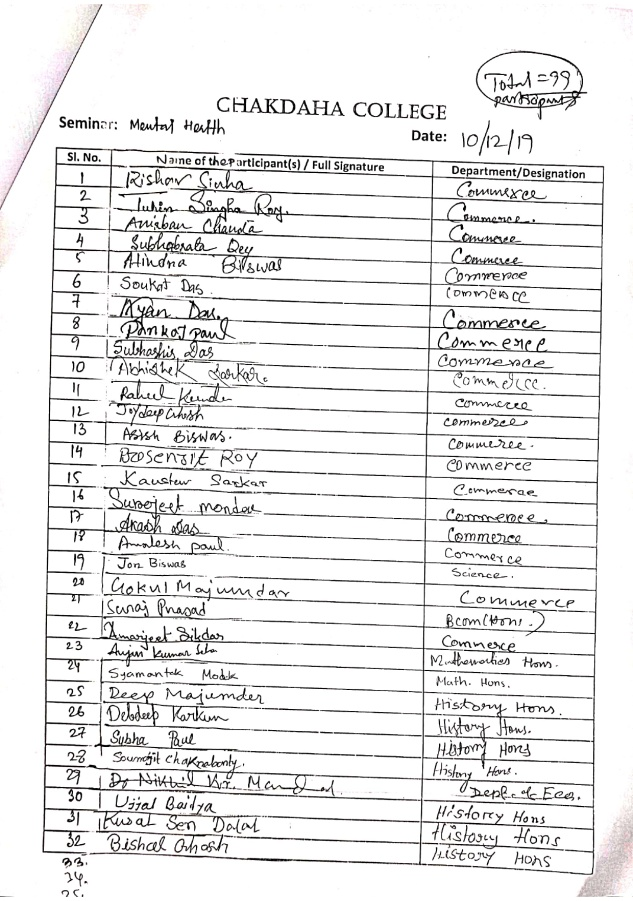 Total = 99
participants
CHAKDAHA COLLEGE
Seminar: Mental Health
Date: 10/12/19
Sl. No. Name of the Participant(s) / Full Signature Department/Designation
1 Rishav Sinha Commerce
2 Tuhin Singha Roy. Commerce.
3 Anirban Chanda Commerce
4 Subhabrata Dey Commerce
5 Atindria Biswas Commerce
6 Soukat Das Commerce
7 Ayan Das. Commerce
8 Pankaj paul Commerce
9 Subhashis Das Commerce
10 Abhishek Sarkar. Commerce.
11 Rahul Kundu commerce
12 Joydeep Ghosh commerce
13 Asish Biswas. commerce.
14 Prosenjit Roy commerce
15 Kaustuv Sarkar Commerce
16 Suvojeet mondal Commerce.
17 Akash Das Commerce
18 Amalesh paul. Commerce
19 Jon Biswas Science.
20 Gokul Majumdar Commerce
21 Suraj Prasad Bcom(Hons.)
22 Amarjeet Sikdar Commerce
23 Kumar Mathematics Hons.
24 Syamantak Modak Math. Hons.
25 Deep Majumder History Hons.
26 Debdeep Karkun History Hons.
27 Subha Paul History Hons
28 Soumojit Chakraborty. History Hons.
29 Dr Nikhil Kr. Mandal Dept. of Eco.
30 Ujjal Baidya History Hons
31 Kusal Sen Dalal History Hons
32 Bishal Ghosh History Hons
33.
34.
35.